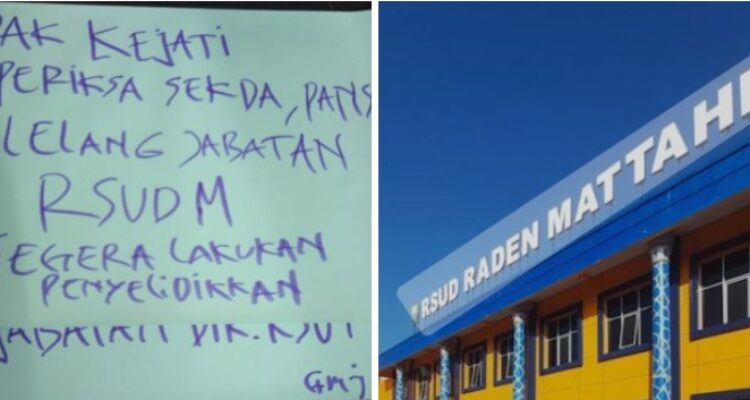 PAK KEJATI
PERIKSA SEKDA, PANS
LELANG JABATAN
RSUD M
SEGERA LAKUKAN
PENYELIDIKKAN
JABATAN DIR. RSUD
GMJ
RSUD RADEN MATTAHE